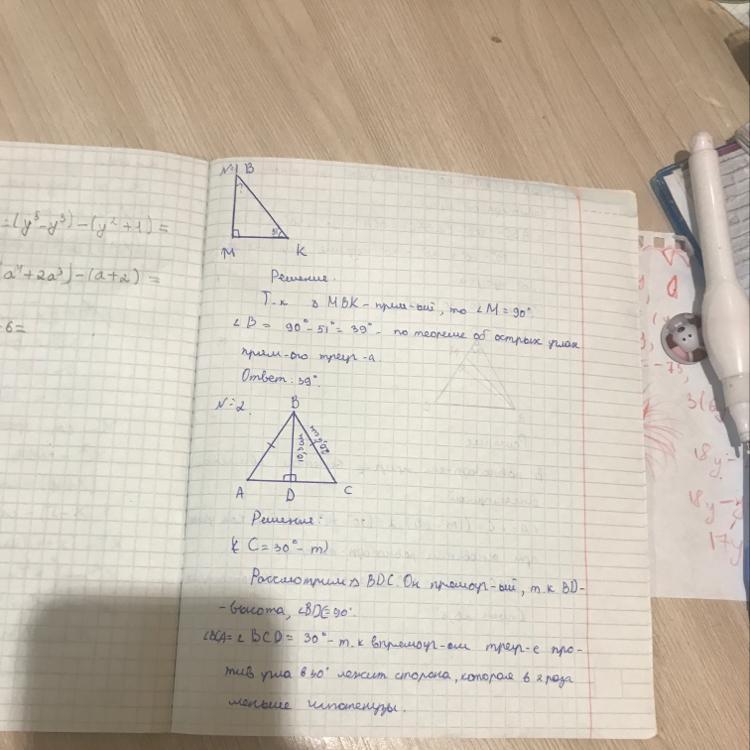 =(y⁵-y³)-(y²+1)=
a⁴+2a³)-(a+2)=
6=
№1 B
?
51°
M K
Решение.
Т.к Δ MBK-прям-ый, то ∠M=90°.
∠B = 90°-51°=39°- по теореме об острых углах
прям-ого треуг-а.
Ответ: 39°.
№2. B
A D C
Решение:
(∠ C=30°-т)
Рассмотрим Δ BDC. Он прямоуг-ый, т.к BD-
-высота, ∠BDC=90°.
∠BCA=∠BCD= 30°-т.к в прямоуг-ом треуг-е про-
тив угла в 30° лежит сторона, которая в 2 раза
меньше гипотенузы.
-73,
3(6
18y-
18y-
17y